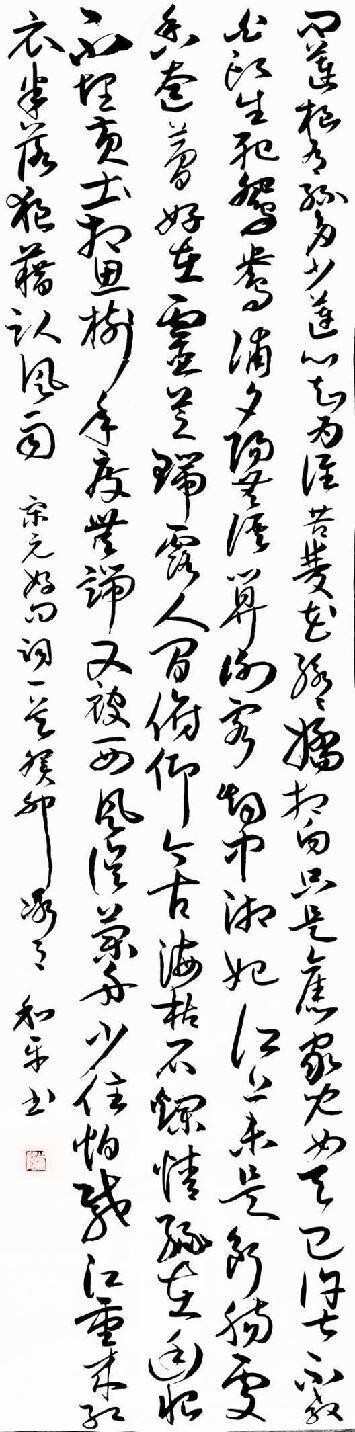 问莲根有丝多少莲心知为谁苦双花脉〻娇相向只是旧家儿女天已许甚不教
白头生死鸳鸯浦夕阳无语算谢客烟中湘妃江上未是断肠处
香奁梦好在灵芝瑞露人间俯仰今古海枯石烂情缘在幽恨
不埋黄土相思树年度无端又被西风误兰舟少住怕载酒重来红
衣半落狼藉卧风雨 宋元好问词一首癸卯 和平书